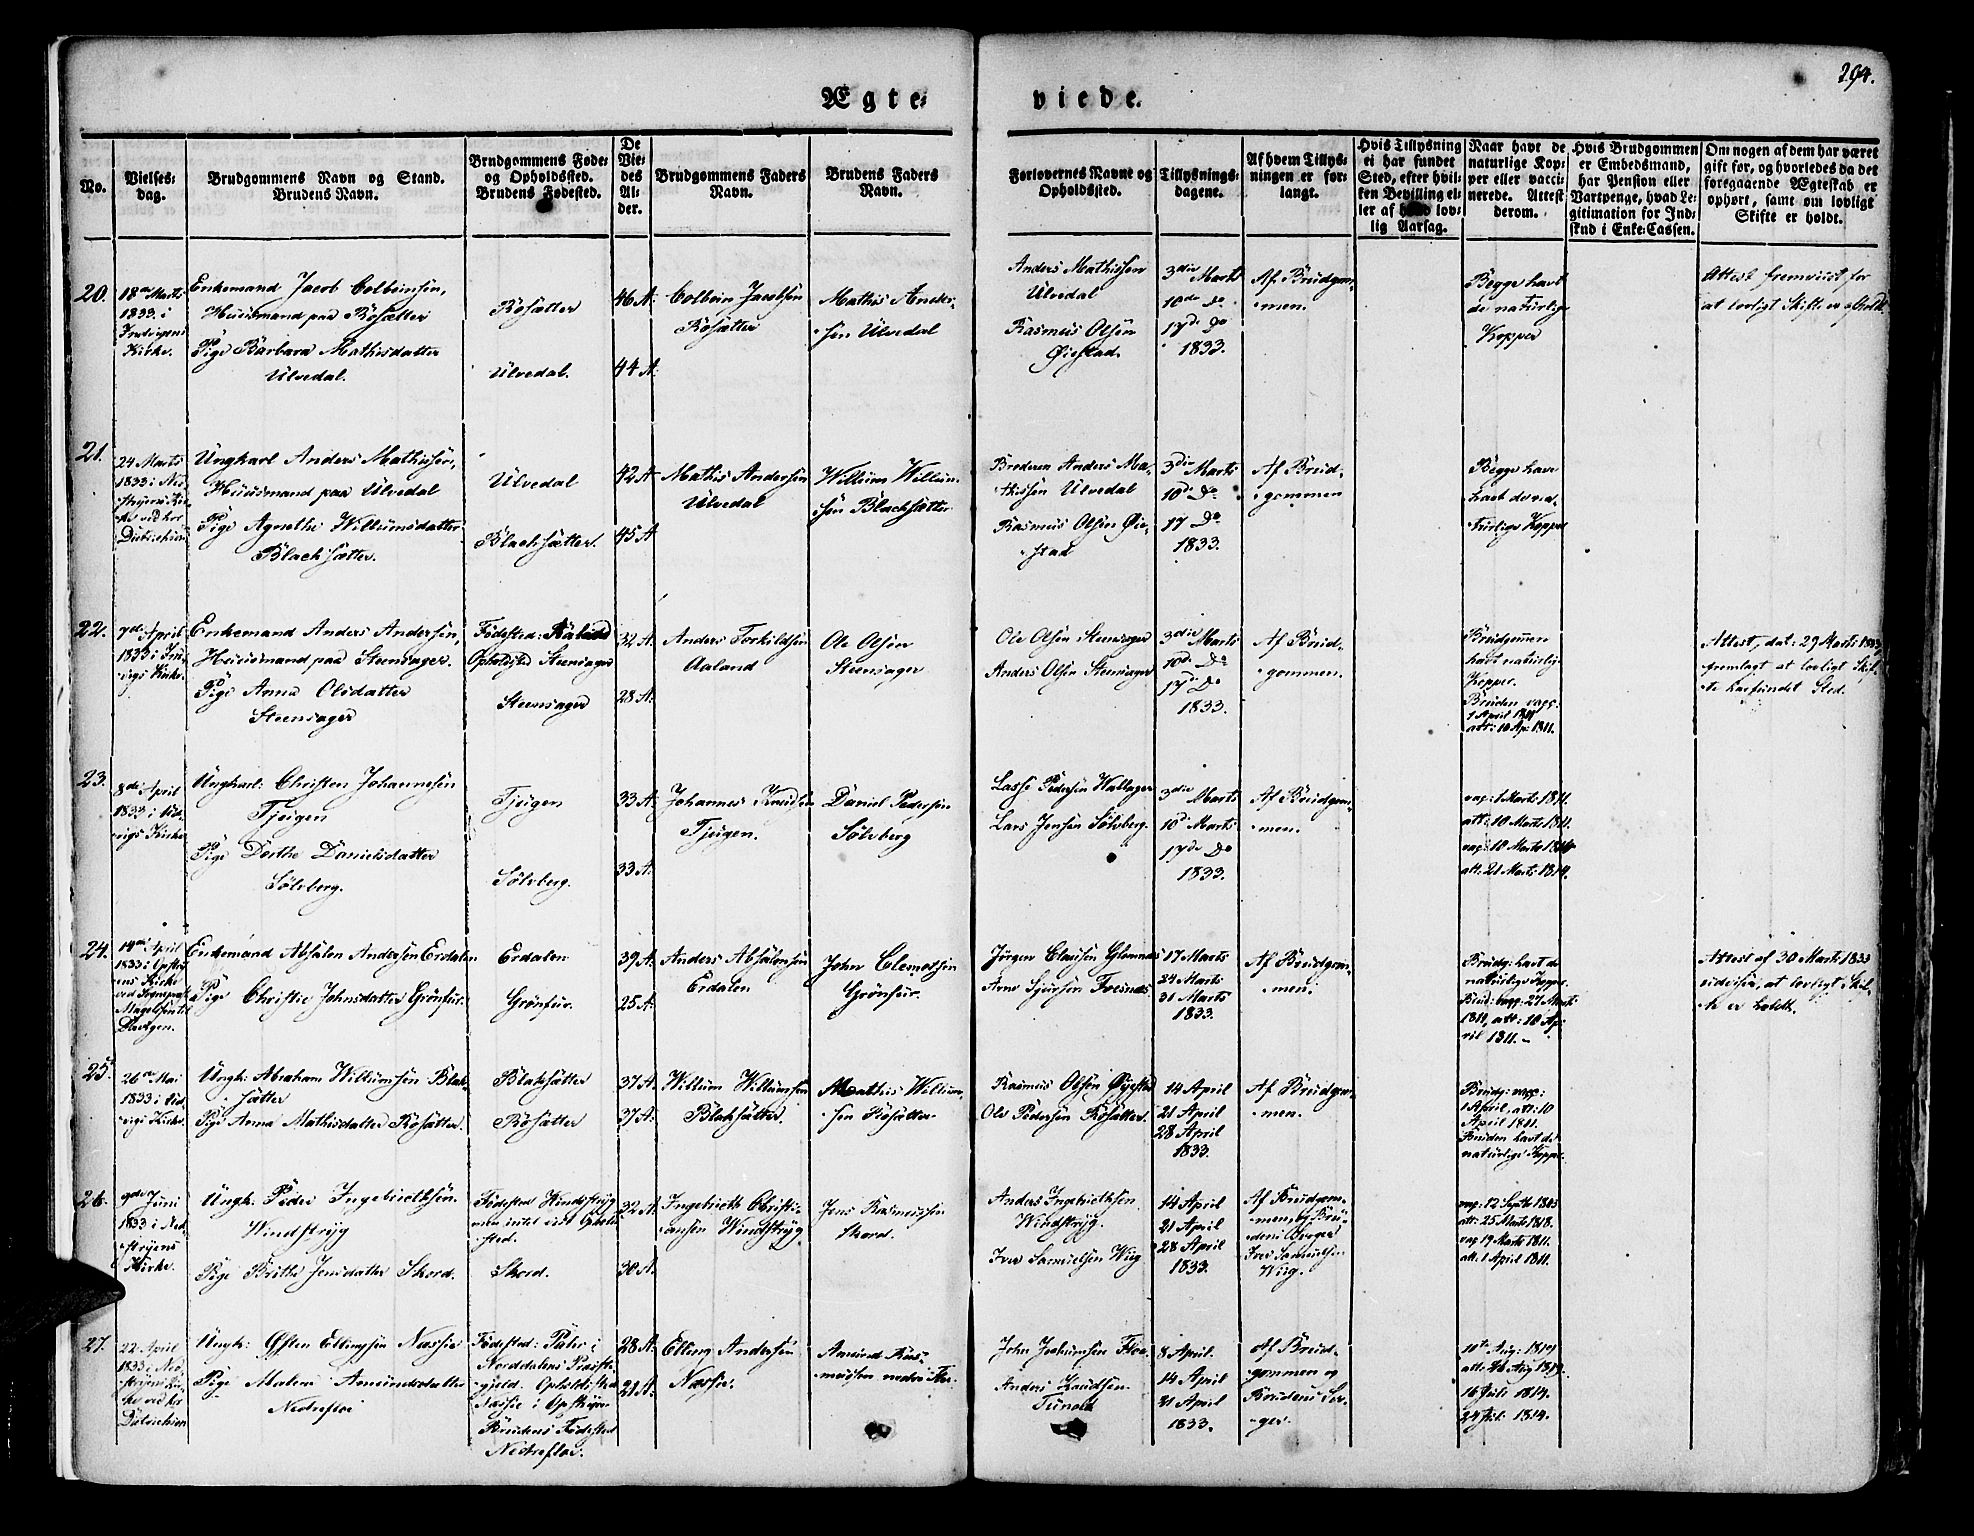 Ægte-
viede.
294.
No.
Vielses-
dag.
Brudgommens Navn og Stand.
Brudens Navn.
Brudgommens Føde-
og Opholdssted.
Brudens Fødested.
De
Vie-
des
Al-
der.
Brudgommens Faders
Navn.
Brudens Faders
Navn.
Forlovernes Navne og
Opholdssted.
Tillysnings-
dagene.
Af hvem Tillys-
ningen er for-
langt.
Hvis Tillysning
ei har fundet
Sted, efter hvil-
ken Bevilling el-
ler af lov-
lig Aarsag.
Naar havt de
naturlige Kop-
per eller vacci-
nerede. Attest
derom.
Hvis Brudgommen
er Embedsmand,
har Pension eller
Vartpenge, hvad Le-
gitimation for Ind-
skud i Enke-Cassen.
Om nogen af dem har været
gift før, og hvorledes da det
foregaaende Ægteskab er
ophørt, samt om lovligt
Skifte er holdt.
20.
18de Marts
1833. i
Indvigens
Kirke.
Enkemand Jacob Colbeinsen,
Huusmand paa Rosætter
Pige Barbara Mathisdatter
Ulvedal.
Rosætter
Ulvedal.
46 A:
44 A:
Colbein Jacobsen
Rosætter
Mathis Anders-
sen Ulvedal
Anders Mathissen
Ulvedal
Rasmus Olsen
Øiestad.
3die Marts
10de Do
17de Do
1833.
Af Brudgom-
men.
Begge havt
de naturlige
Kopper
Attest fremviist for
at lovligt Skifte er afholdt
21.
24 Marts
1833 i Ned-
stryens Kir-
ke ved hr
Ungkarl Anders Mathissen,
Huusmand paa Ulvedal
Pige Agnethe Willumsdatter
Blachsætter.
Ulvedal
Blachsætter.
42 A
45 A
Mathis Andersen
Ulvedal
Willum Willum-
sen Blachsætter
Broderen Anders Ma-
thissen Ulvedal
Rasmus Olsen Øie-
stad
3die Marts
10de Do
17 Do
1833.
Af Brud-
gommen
Begge have
havt de na-
turlige Kopper
22.
7de April
1833 i Ind-
vigs Kirke.
Enkemand Anders Andersen,
Huusmand paa Steensager.
Pige Anna Olsdatter
Steensager
Fødested:
Opholdsted Steensager
Steensager
32 A.
28 A.
Anders Torkildsen
Aaland
Ole Olsen
Steensager
Ole Olsen Steensager
Anders Olsen Steensager
3die Marts
10de Do
17de Do
1833.
Af Brud-
gommen.
Brudgommen
havt naturlige
Kopper.
Bruden vacc:
1 April 1811
att: 10 Ap: 1811.
Attest, dat: 29 Marts 1833,
fremlagt at lovligt Skif-
te har fundet Sted.
23.
8de April
1833 i Ind-
vigs Kirke
Ungkarl: Christen Johannesen
Tjugen
Pige Dorthe Danielsdatter
Sølvberg.
Tjugen
Sølvberg.
33 A.
33 A.
Johannes Knudsen
Tjugen.
Daniel Pedersen
Sølvberg
Lasse Pedersen Wallager
Lars Jensen Sølvberg.
3die Marts
10de Marts
17de Do
1833.
Af Brudgom-
men.
vac: 1 Marts 1811.
att: 10 Marts 1811.
vac: 18 Marts 1814
att: 21 Marts 1814.
24.
14de April
1833 i Opstry-
ens Kirke
Enkemand Absalon Andersen Erdalen
Pige Christie Johnsdatter Grønfur.
Erdalen
Grønfur.
39 A.
25 A.
Anders Absalonsen
Erdalen
John Clemetsen
Grønfur.
Jørgen Clausen Glomnæs
Arne Sjursen Fosnæs
17 Marts
24 Marts
31 Marts
1833.
Af Brudgom-
men.
Brudg: havt de
naturlige Kopper.
Brud: vacc: 27 Marts
1811, att: 10 Ap-
ril 1811.
Attest af 30 Marts 1833
udvisen, at lovligt Skif-
te er holdt.
25.
26de Mai
1833 i Ind-
vigs Kirke.
Ungk: Abraham Willumsen Blak-
sætter
Pige Anna Mathisdatter Rosætter.
Blaksætter
Rosætter
37 A.
37 A.
Willum Willumsen
Blaksætter.
Mathis Willum-
sen Rosætter.
Rasmus Olsen Øyestad
Ole Pedersen Rosætter.
14 April
21 April
28 April
1833.
Af Brudgom-
men.
Brudg: vacc:
1 April, att: 10
April 1811.
Bruden havt de
naturlige Kopper.
26.
9de Juni
1833 i Ned-
stryens
Kirke.
Ungk: Peder Ingebriethsen
Windstryg
Pige Brithe Jensdatter Skord.
Fødested Windstryg
men intet vist Ophold-
sted.
Skord.
22 A.
30 A.
Ingebrieth Christi-
ansen Windstryg
Jens Rasmussen
Skord.
Anders Ingebriethsen
Windstryg.
Iver Samuelsen Wiig
14 April
21 April
28 April
1833.
Af Brudgom-
men og Bru-
dens Sværger
Iver Samuelsen
Wiig.
vac: 12 Septb 1803
att: 25 Marts 1818.
vac 19 Marts 1811.
att. 1 April 1811.
27.
22 April
1833 i Ned-
stryens Kir-
ke ved hr
Ungk: Østen Ellingsen Næssie
Pige Malene Amundsdatter
Nedrefloe
Fødested: i
Norddalens Præste-
gjeld. Opholdsted
Næssie i Opstryen
Brudens Fødested
Nedrefloe.
28 A.
21 A.
Elling Andersen
Næssie.
Amund Ras-
mussen nedre Floe.
John Johnsen Floe.
Anders Knudsen
Tunold
8 April.
14 April
21 April
1833.
Af Brud-
gommen og
Brudens Svær-
ger.
10de Aug: 1819
att: 26 Aug 1819.
16 Juli 1814.
24 Jul: 1814.